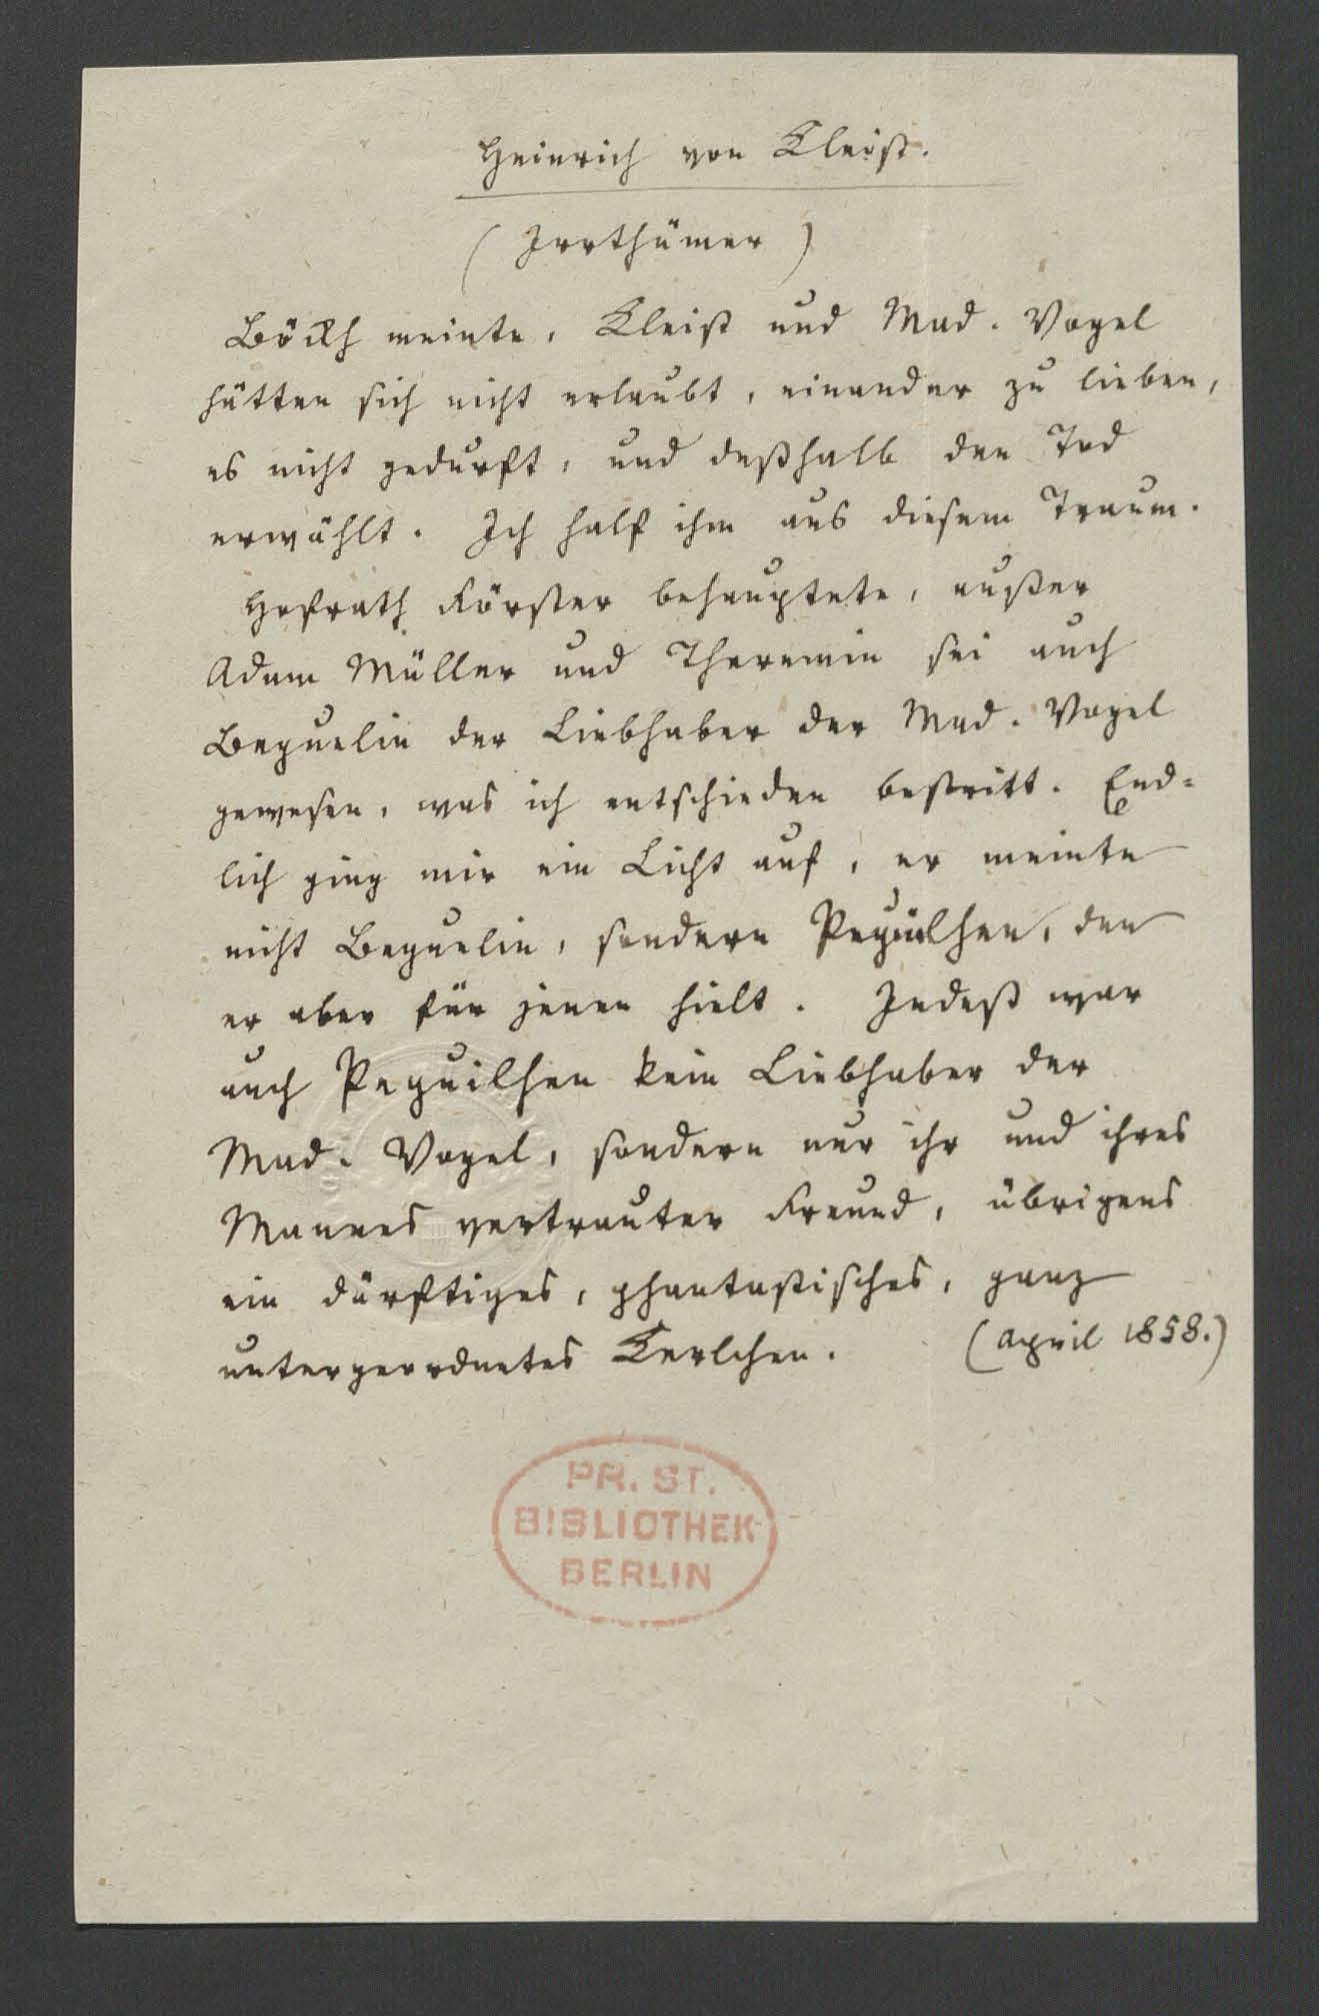 Heinrich von Kleist.
(Irrthümer)
Böckh meinte, Kleist und Mad. Vogel
hätten sich nicht erlaubt, einander zu lieben,
es nicht gedurft, und deßhalb den Tod
erwählt. Ich half ihm aus diesem Traum.
Hofrath Förster behauptete, außer
Adam Müller und Theremin sei auch
Beguelin der Liebhaber der Mad. Vogel
gewesen, was ich entschieden bestritt. End-
lich ging mir ein Licht auf, er meinte
nicht Beguelin, sondern Peguilhen, den
er aber für jenen hielt. Indeß war
auch Peguilhen kein Liebhaber der
Mad. Vogel, sondern nur ihr und ihres
Mannes vertrauter Freund, übrigens
ein dürftiges, phantastisches, ganz
untergeordnetes Kerlchen. (April 1858.)
PR. ST.
BIBLIOTHEK
BERLIN